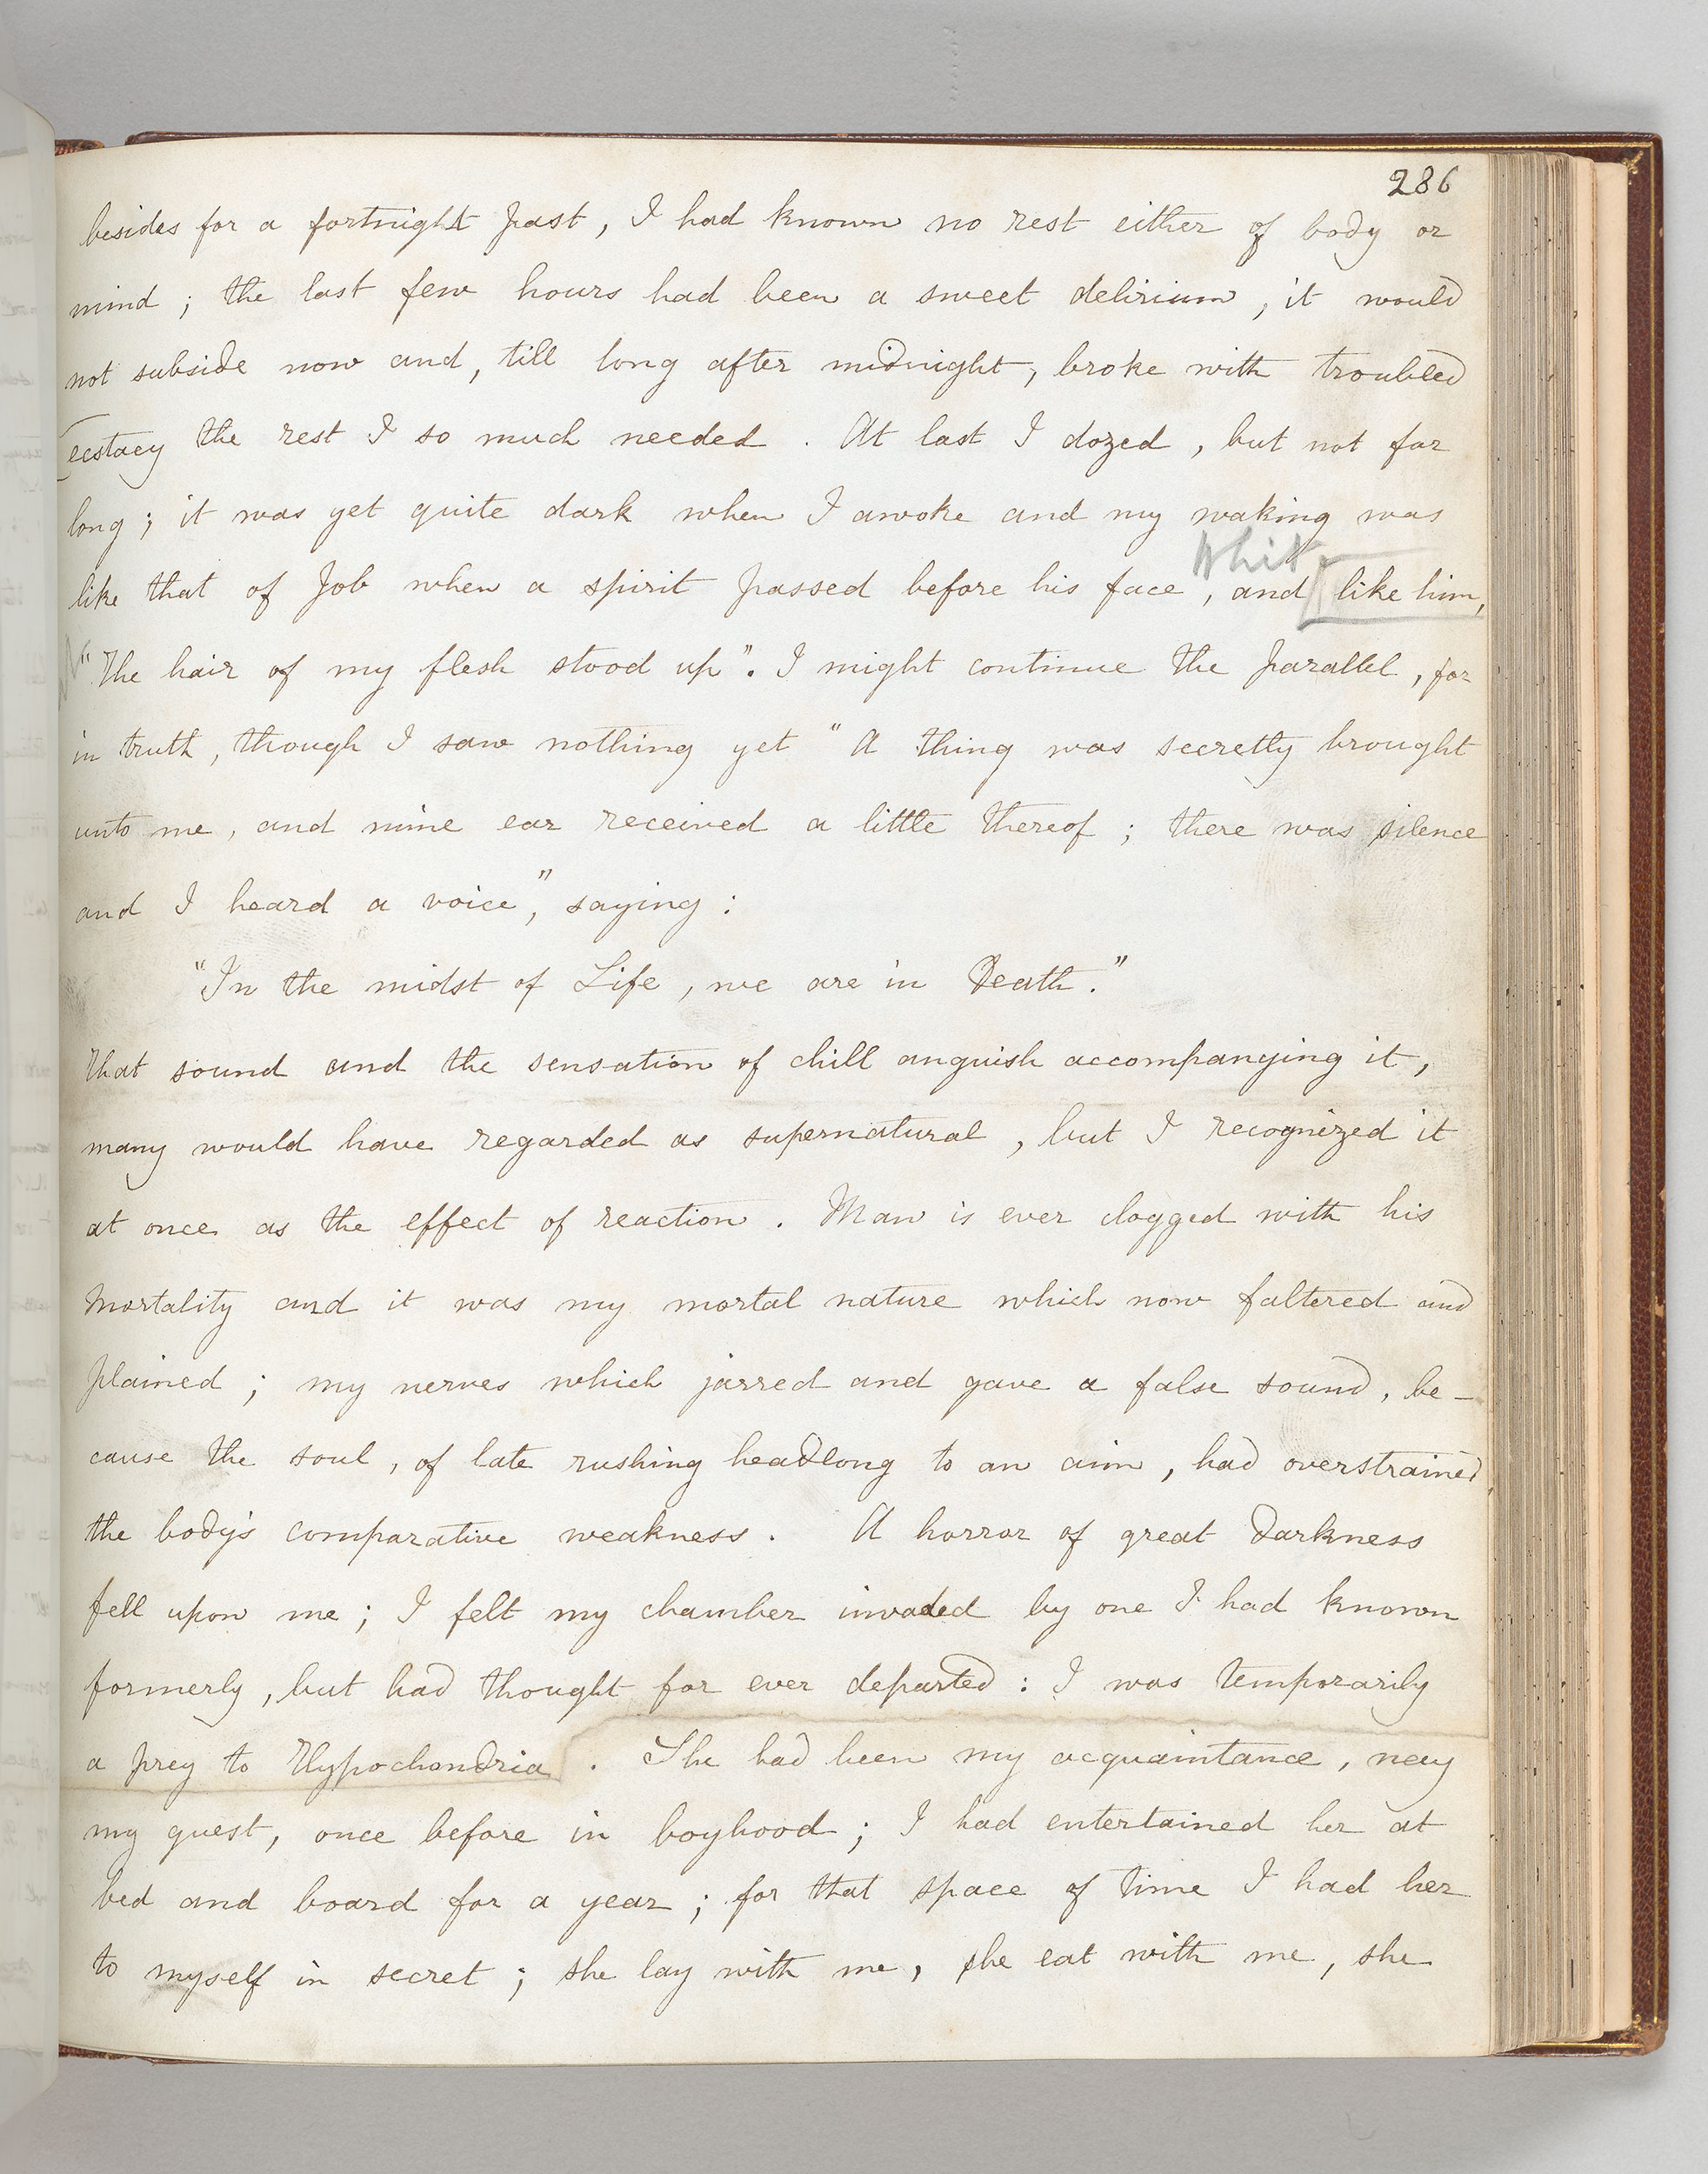 286
besides for a fortnight past, I had known no rest either of body or
mind; the last few hours had been a sweet delirium, it would
not subside now and, till long after midnight, broke with troubled
ecstacy the rest I so much needed. At last I dozed, but not for
long; it was yet quite dark when I awoke and my waking was
Whit
like that of Job when a spirit passed before his face, and like him,
"The hair of my flesh stood up". I might continue the parallel, for
in truth, though I saw nothing yet "A thing was secretly brought
unto me, and mine ear received a little thereof; there was silence
and I heard a voice," saying:
"In the midst of Life, we are in Death."
That sound and the sensation of chill anguish accompanying it,
many would have regarded as supernatural, but I recognized it
at once as the effect of reaction. Man is ever clogged with his
Mortality and it was my mortal nature which now faltered and
plained; my nerves which jarred and gave a false sound, be-
cause the soul, of late rushing headlong to an aim, had overstrained
the body's comparative weakness. A horror of great darkness
fell upon me; I felt my chamber invaded by one I had known
formerly, but had thought for ever departed: I was temporarily
a prey to Hypochondria. She had been my acquaintance, nay
my guest, once before in boyhood; I had entertained her at
bed and board for a year; for that space of time I had her
to myself in secret; she lay with me, she eat with me, she